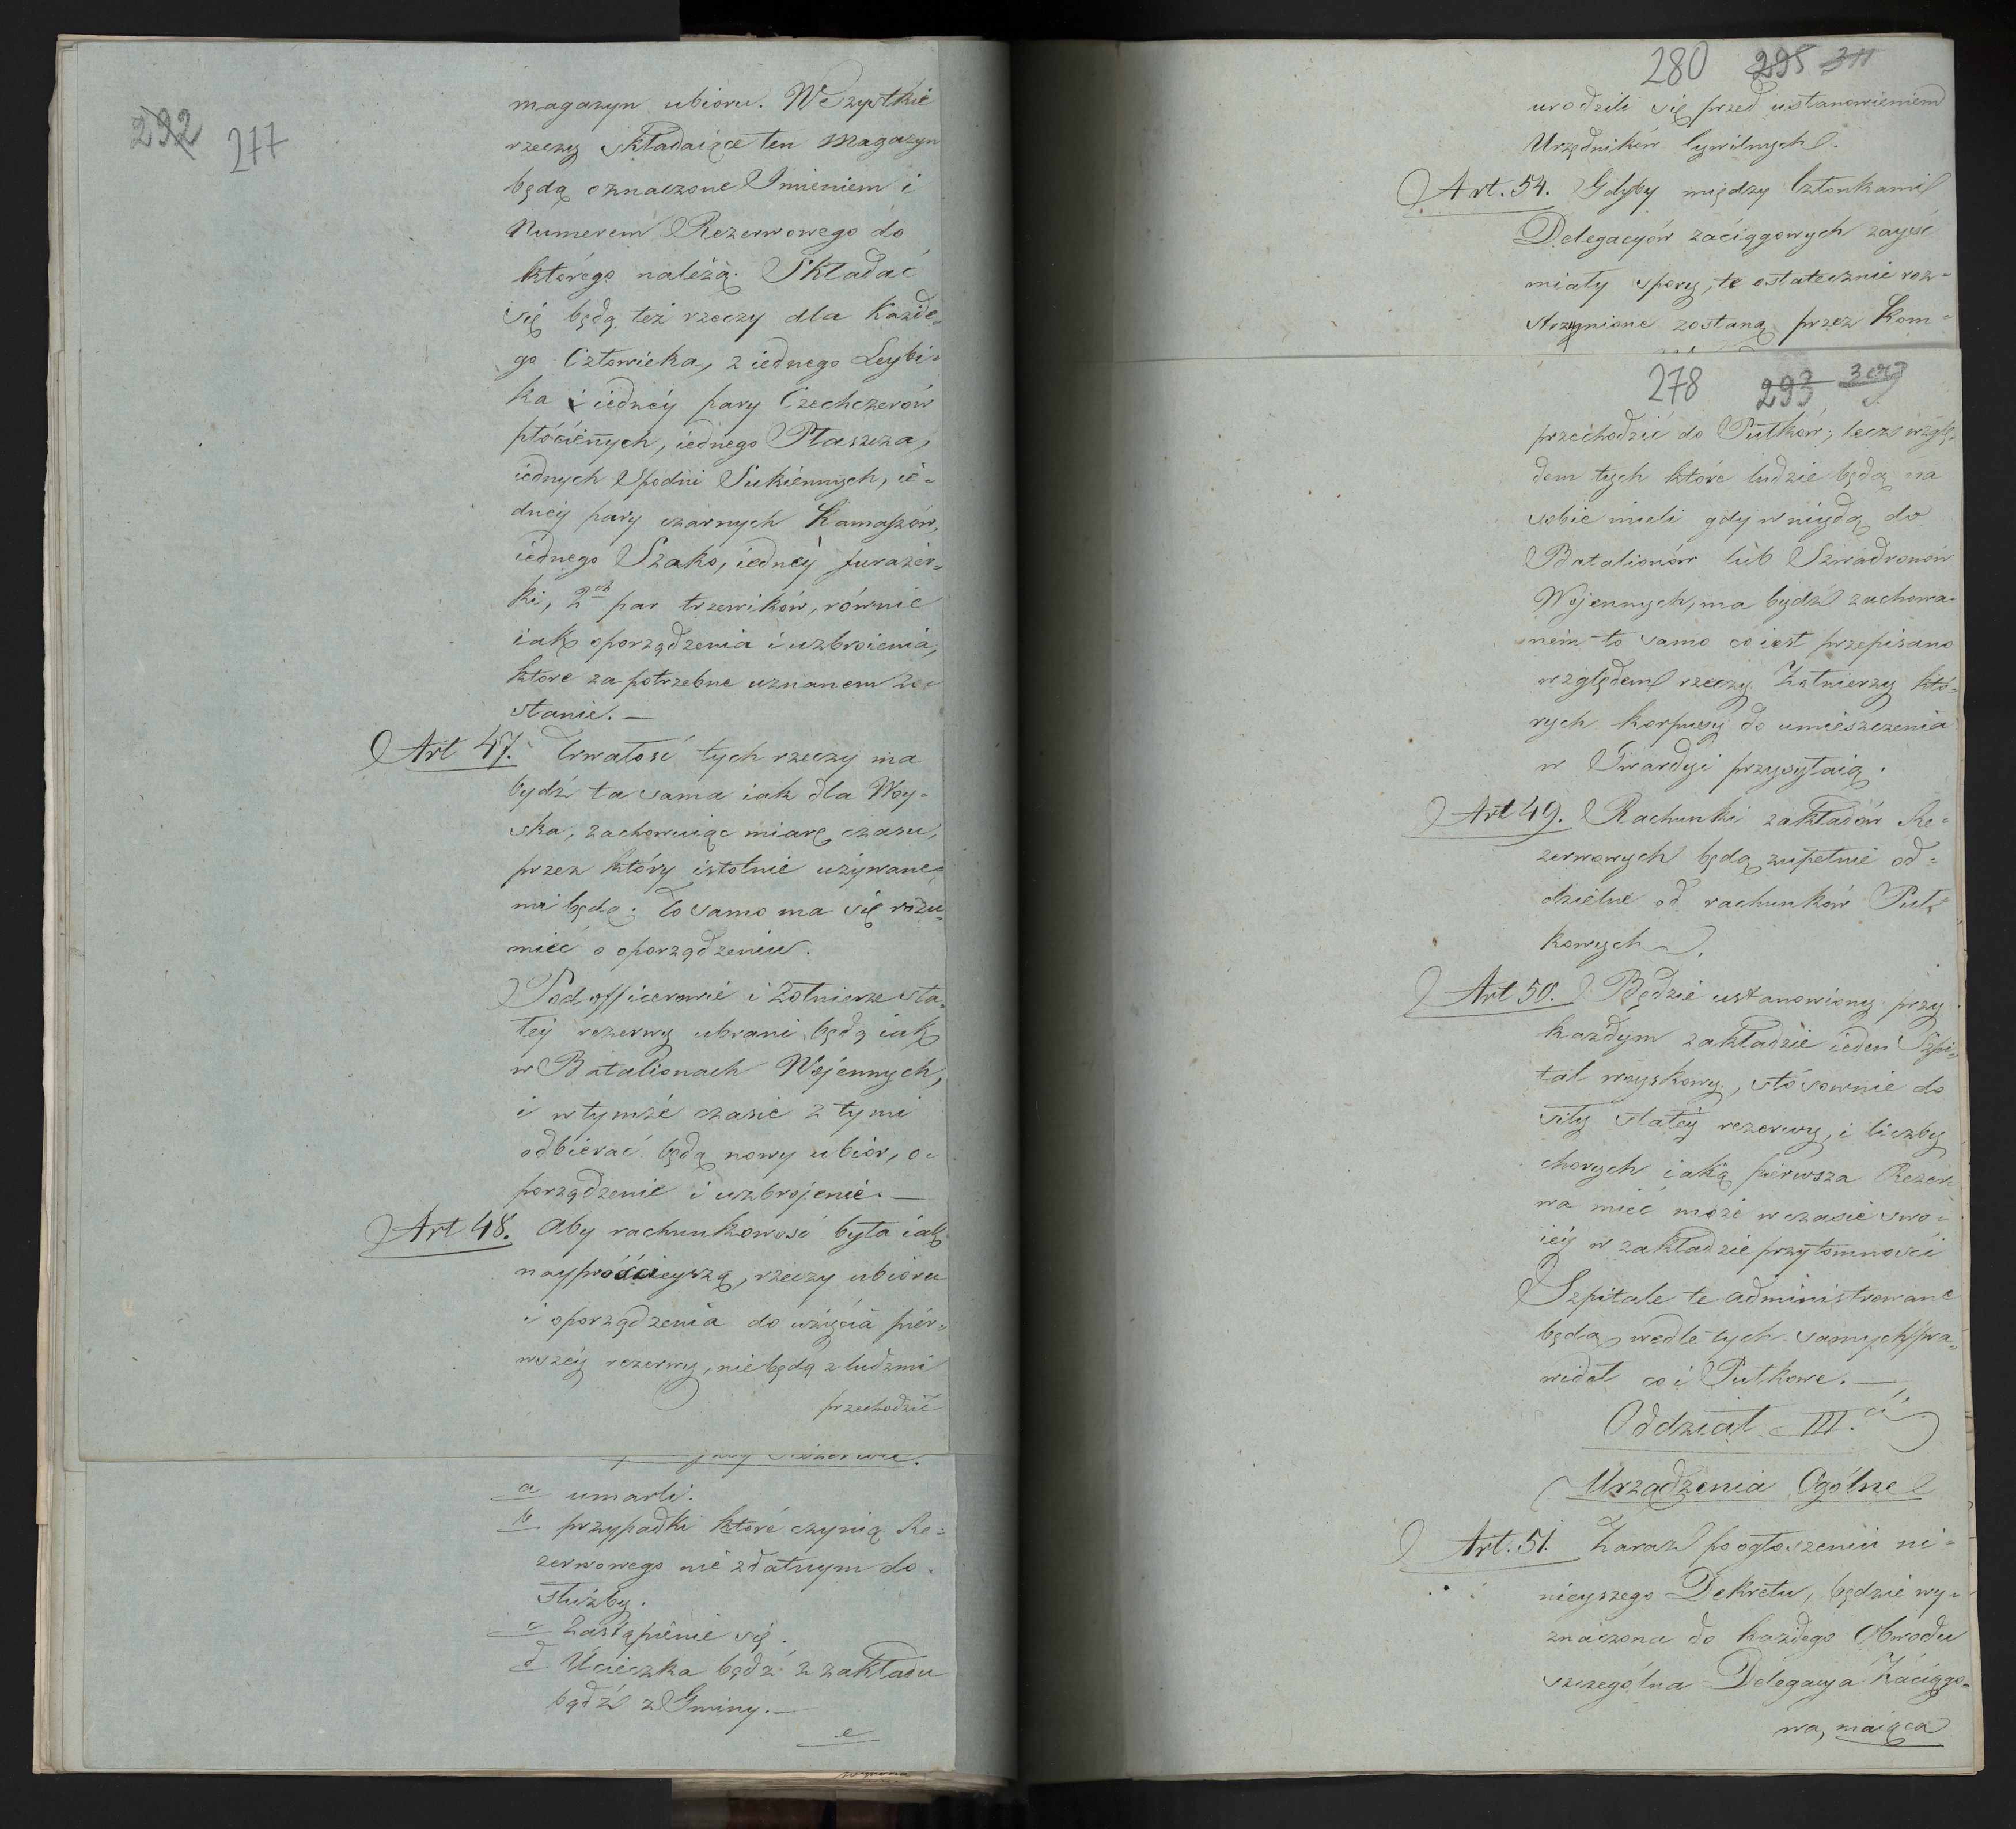 292 277
magazyn ubioru. Wszystkie
rzeczy składaiące ten Magazyn
będą oznaczone Imieniem i
Numerem Rezerwowego do
którego należą. Składać
się będą też rzeczy dla każde-
go Człowieka, z iednego Leybi-
ka i iednéy pary Czechczerów
płóciennych, iednego Płaszcza,
iednych Spodni Sukiennych, ie-
dnéy pary czarnych Kamaszów,
iednego Szako, iednéy furażer-
ki, 2ch par trzewików, równie
iak oporządzenia i uzbroienia,
które za potrzebne uznanem zo-
stanie. —
Art 47. Trwałość tych rzeczy ma
bydź ta sama iak dla Woy-
ska, zachowuiąc miarę czasu,
przez który istotnie używane-
mi będą. To samo ma się rozu-
mieć o oporządzeniu.
Podofficerowie i Żołnierze sta-
łéy rezerwy ubrani będą iak
w Batalionach Wojennych,
i w tymże czasie z tymi
odbierać będą nowy ubiór, o-
porządzenie i uzbrojenie. —
Art 48. Aby rachunkowość była iak
nayprościeyszą, rzeczy ubioru
i oporządzenia do użycia pier-
wszéy rezerwy, nie będą z ludźmi
przechodzić
a umarli.
b przypadki które czynią Re-
zerwowego nie zdatnym do
służby.
c Zastąpienie się.
d Ucieczka bądź z zakładu
bądź z Gminy. —
e
280 295 311
urodzili się przed ustanowieniem
Urzędników Cywilnych.
Art. 54. Gdyby między Członkami
Delegacyów zaciągowych zayść
miały spory, te ostatecznie roz-
strzygnione zostaną przez Kom-
278 293 309
przechodzić do Pułków; lecz wzglę-
dem tych które ludzie będą na
sobie mieli gdy wniydą do
Batalionów lub Szwadronów
Wojennych, ma bydź zachowa-
nem to samo co iest przepisano
względem rzeczy Żołnierzy któ-
rych korpusy do umieszczenia
w Gwardyi przysyłaią.
Art 49. Rachunki zakładów Re-
zerwowych będą zupełnie od-
dzielne od rachunków Puł-
kowych.
Art 50. Będzie ustanowiony przy
każdym zakładzie ieden Szpi-
tal woyskowy, stósownie do
siły stałéy rezerwy, i liczby
chorych iaką pierwsza Rezer-
wa mieć może w czasie swo-
iéy w zakładzie przytomności
Szpitale te administrowane
będą wedle tych samych pra-
wideł co i Pułkowe. —
Oddział III.ci
Urządzenia Ogólne
Art. 51. Zaraz po ogłoszeniu ni-
nieyszego Dekretu, będzie wy-
znaczona do każdego Obwodu
szczególna Delegacya Zaciągo-
wa, maiąca